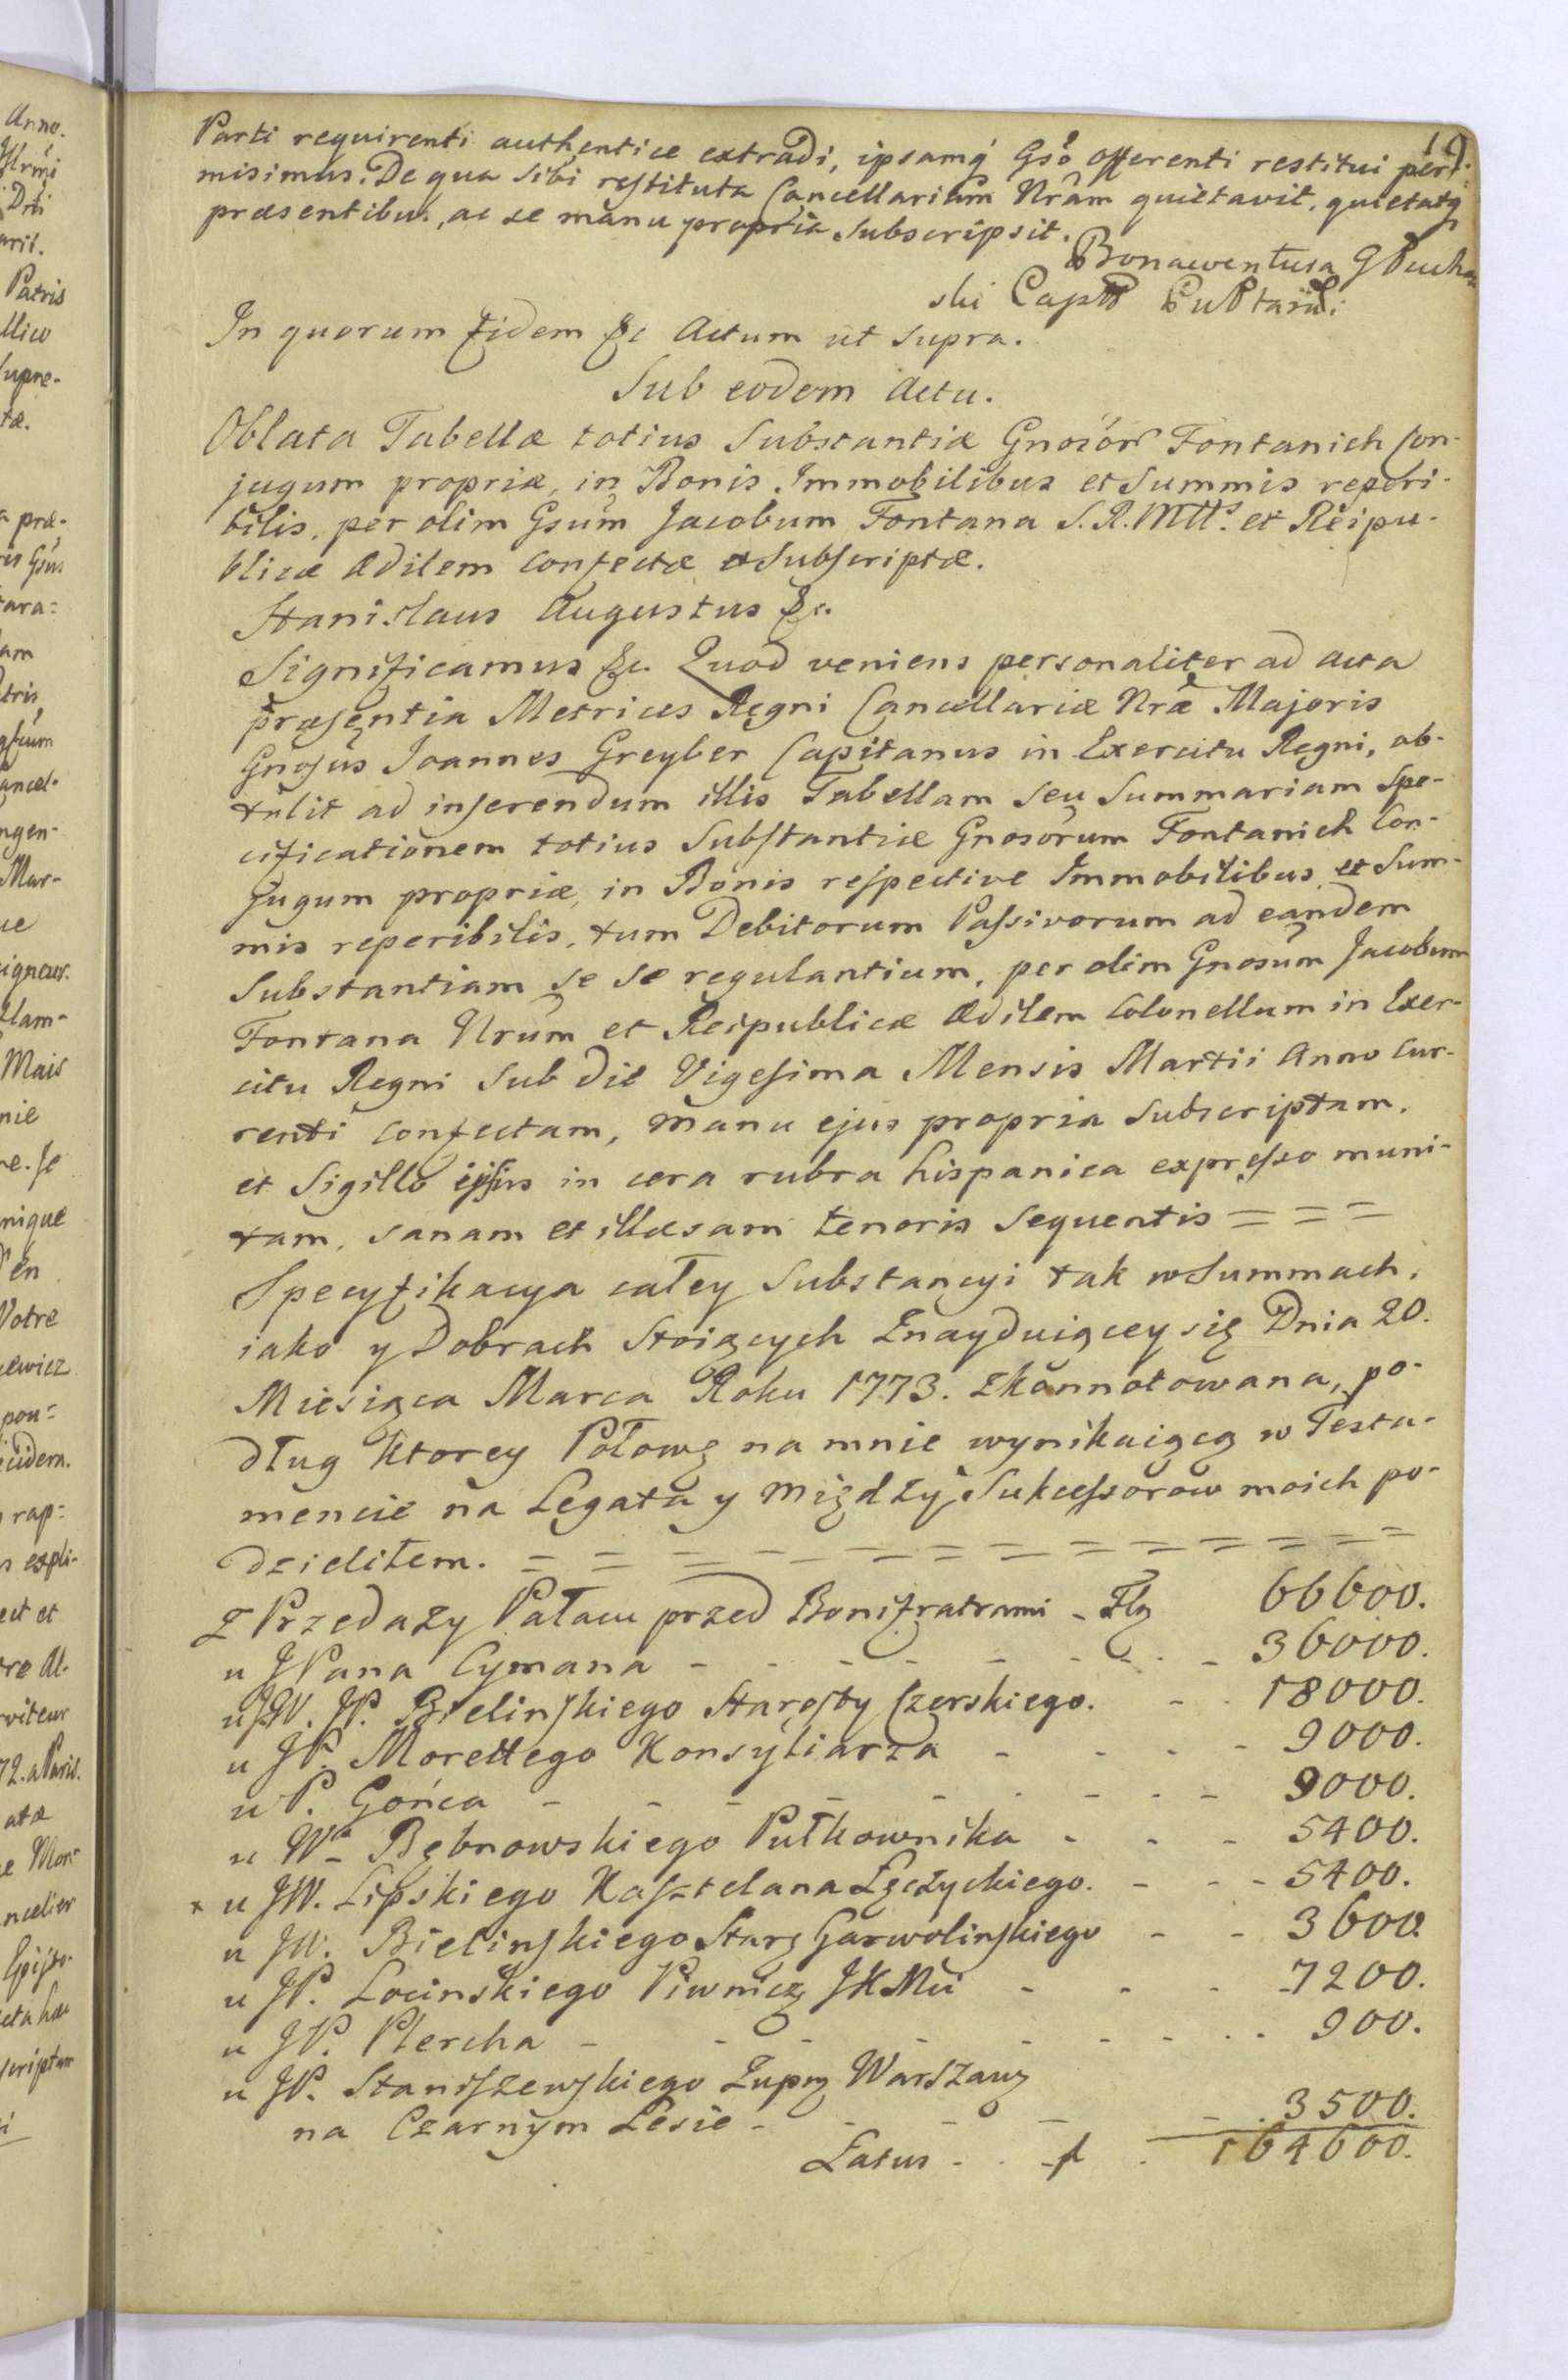 19.
Parti requirenti authentice extradi, ipsamq́ Gsō offerenti restitui per-
misimus. De qua sibi restituta Cancellariam Nrām quietavit, quietatq́
præsentibus, ac se manu propria subscripsit.
Bonawentura
ski Capt
In quorum fidem &c Actum ut supra.
Sub eodem Actu.
Oblata Tabellæ totius Substantiæ Gnosōr Fontanich Con-
jugum propriæ, in Bonis Immobilibus et Summis reperi-
bilis, per olim Gsūm Jacobum Fontana S. R. Mttis. et Reipu-
blicæ Ædilem confectæ et subscriptæ.
Stanislaus Augustus &c.
Significamus &c. Quod veniens personaliter ad acta
præsentia Metrices Regni Cancellariæ Nræ Majoris
Gnosūs Joannes Greyber Capitanus in Exercitu Regni, ob-
tulit ad inserendum illis Tabellam seu Summariam Spe-
cificationem totius Substantiæ Gnosōrum Fontanich Con-
jugum propriæ, in Bonis respective Immobilibus et Sum-
mis reperibilis, tum Debitorum Passivorum ad eandem
Substantiam se se regulantium, per olim Gnosūm Jacobum
Fontana Nrum et Reipublicæ Ædilem Colonellum in Exer-
citu Regni sub die Vigesima Mensis Martii Anno cur-
renti confectam, manu ejus propria subscriptam,
et Sigillo ipsius in cera rubra hispanica expresso muni-
tam, sanam et illæsam tenoris sequentis = = =
Specyfikacya całey Substancyi tak w Summach,
iako y Dobrach Stoiących Znayduiącey się Dnia 20.
Miesiąca Marca Roku 1773. zkonnotowana, po-
dług ktorey Połowę na mnie wynikaiącą w Testa-
mencie na Legata y między Sukcessorow moich po-
dzieliłem. = = = = = = = = = = = = =
z Przedaży Pałacu przed Bonifratrami - Flz 66600.
u JPana Cymana - - - - - - - - 36000.
u JW. JP. Bielinskiego Starosty Czerskiego. - - 18000.
u JP. Morettego Konsyliarza - - - - 9000.
u P. Gońca - - - - - - - - - 9000.
u Wo Bębnowskiego Pułkownika - - - 5400.
x u JW. Lipskiego Kasztelana Łęczyckiego. - - - 5400.
u JW. Bielinskiego Starę Garwolinskiego - - 3600.
u JP. Locinskiego Piwniczę JKMci - - - 7200.
u JP. Plercha - - - - - - - - - 900.
u JP. Staniszewskiego Żupnę Warszawę
na Czarnym Lesie - - - - - - 3500.
Latus - - f - 164600.